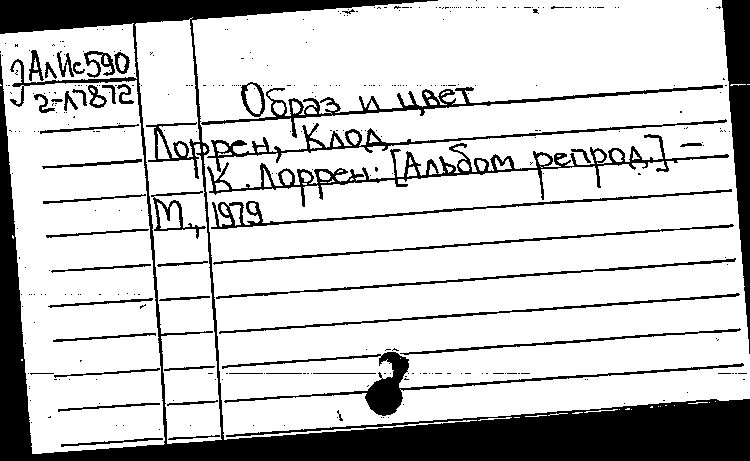 АлИс590
2-17872
Образ и цвет.
Лоррен, Клод.
К. Лоррен: [Альбом репрод.]. –
М., 1979.